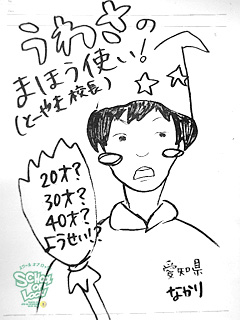 うわさの
まほう使い!
(とーやま校長)
20才?
30才?
40才?
ようせい!?
SCHOOL
OF LOCK!
愛知県
なかり